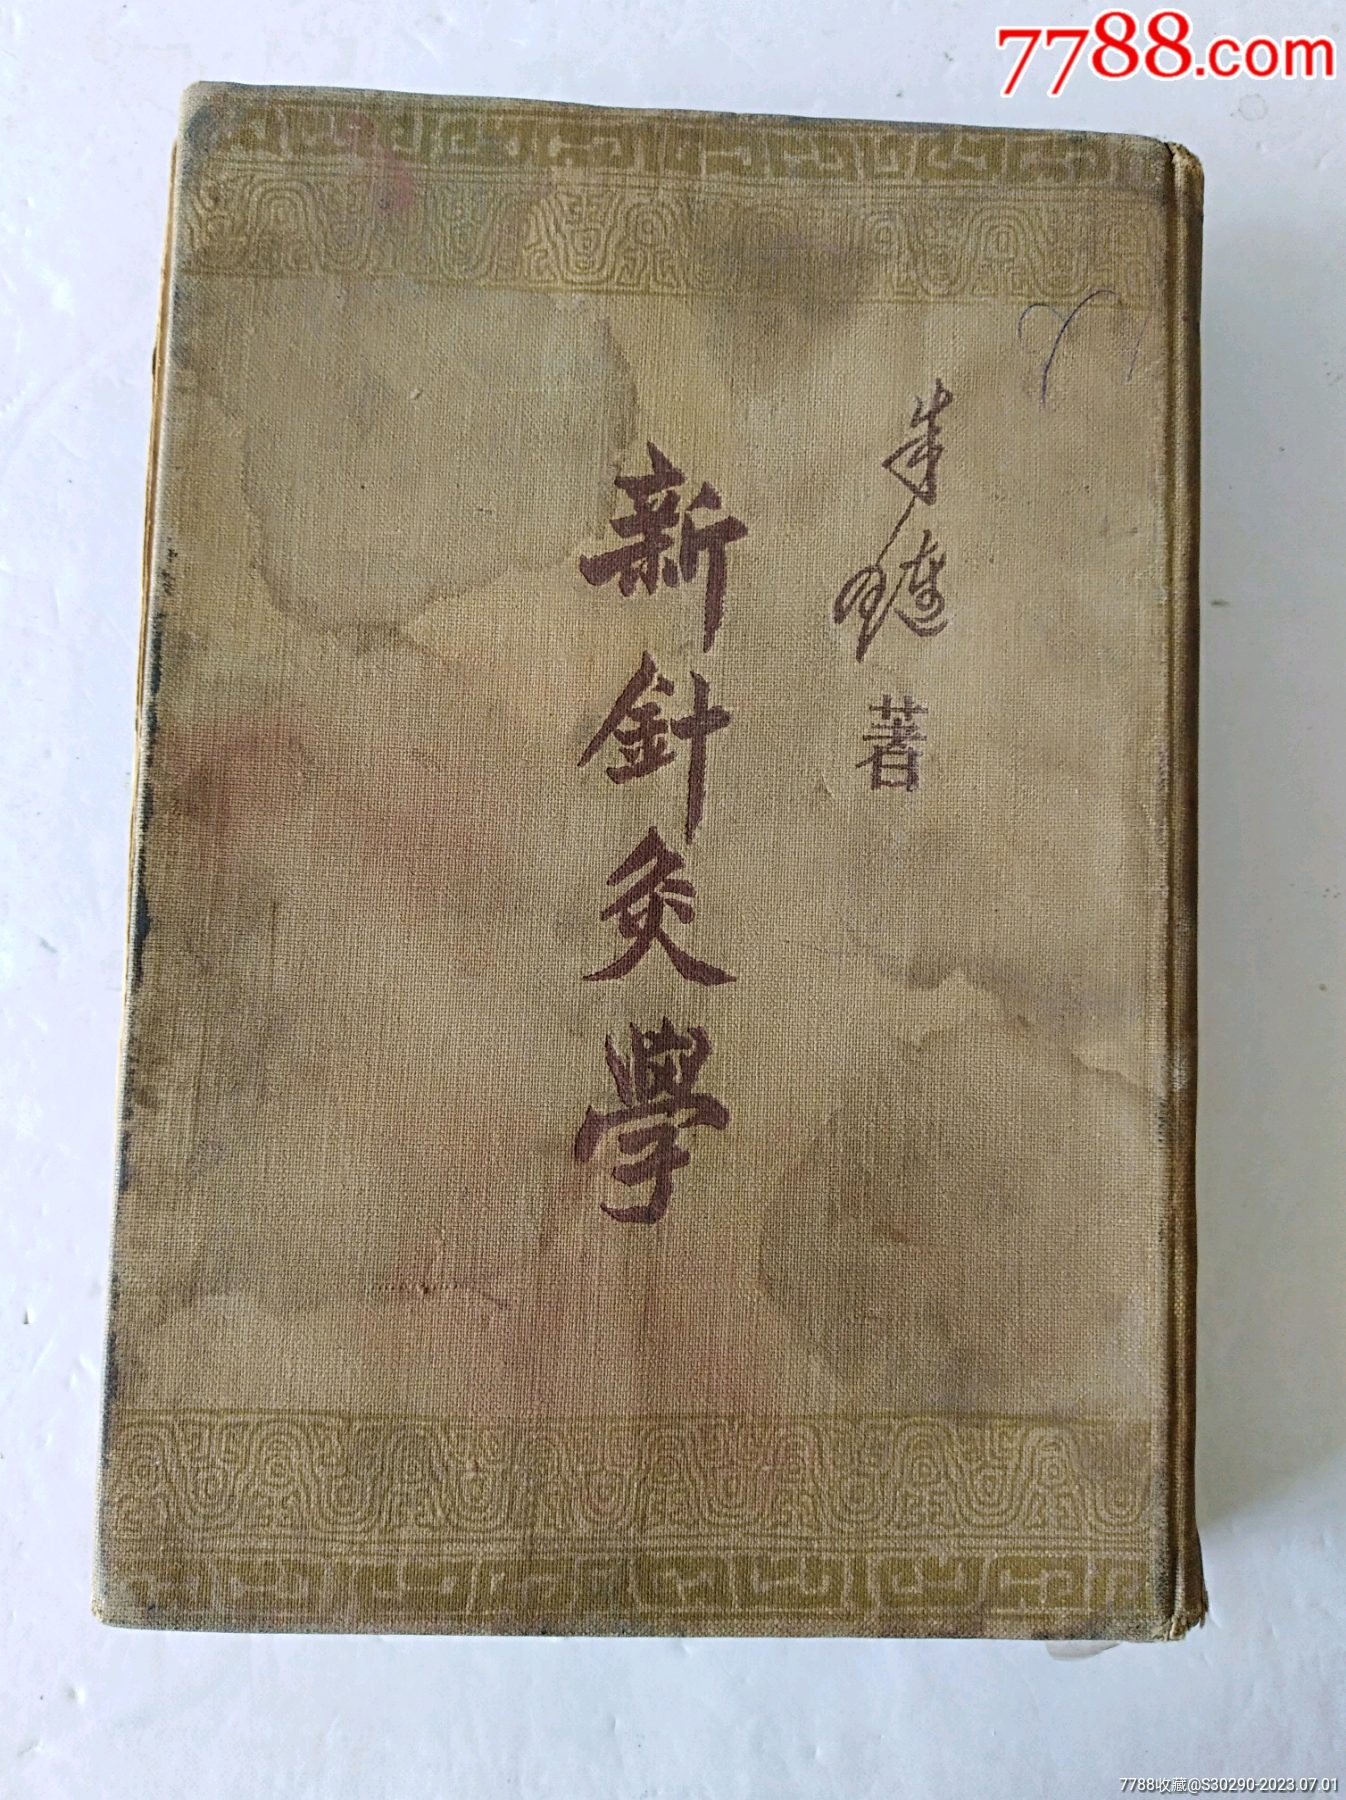 7788.com
朱璉
著
新針灸學
7788收藏@S30290-2023.07.01